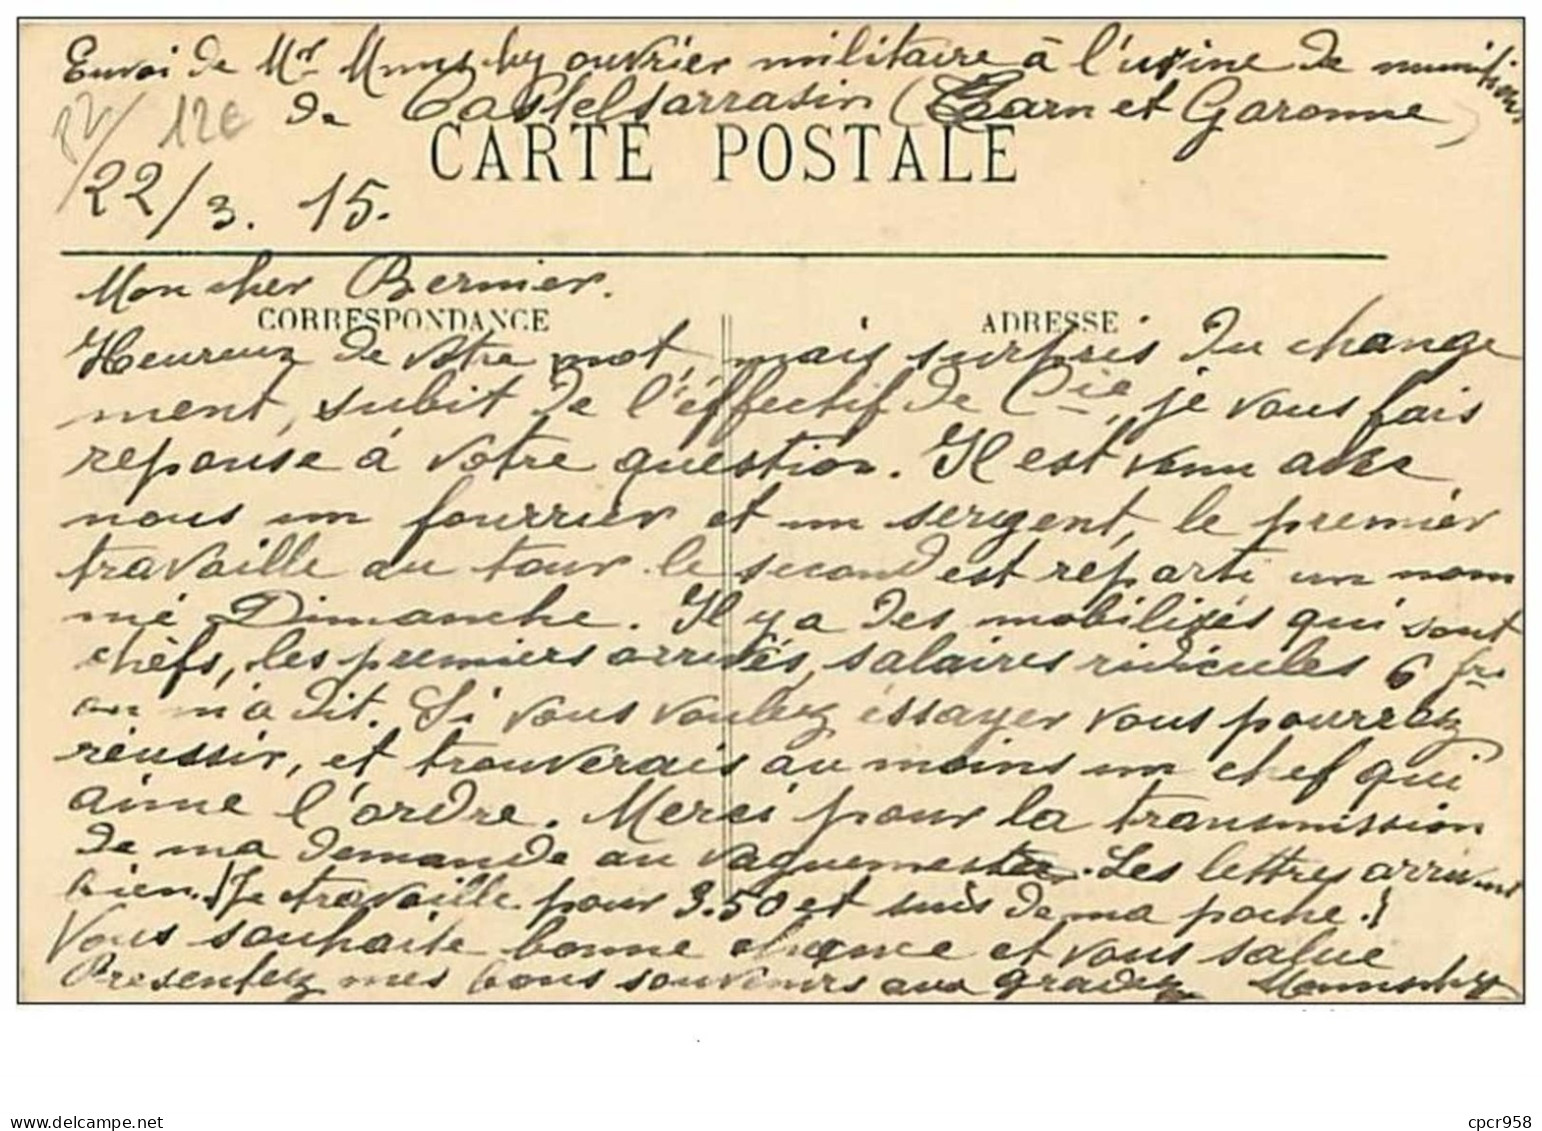 Envoi de Mr Munschy ouvrier militaire à l'usine de munitions
de Castelsarrasin (Tarn et Garonne)
82/ 12€
CARTE POSTALE
22/3. 15.
Mon cher Bernier.
CORRESPONDANCE
ADRESSE
Heureux de votre mot, mais surpris du change
ment, subit de l'éffectif de Cie, je vous fais
reponse à votre question. Il est venu avec
nous un fourrier et un sergent, le premier
travaille au tour le second est réparti un nom
mé Dimanche. Il y a des mobilisés qui sont
chéfs, les premiers arrivés, salaires ridicules 6 frs
on m'a dit. Si vous voulez éssayer vous pourrez
réussir, et trouverais au moins un chef qui
aime l'ordre. Merci pour la transmission
de ma demande au vaguemestre. Les lettres arrivent
bien. Je travaille pour 3.50 et suis de ma poche.!
Vous souhaite bonne chance et vous salue
Presentez mes bons souvenirs aux gradez Munschy
https://www.delcampe.net
cpcr958